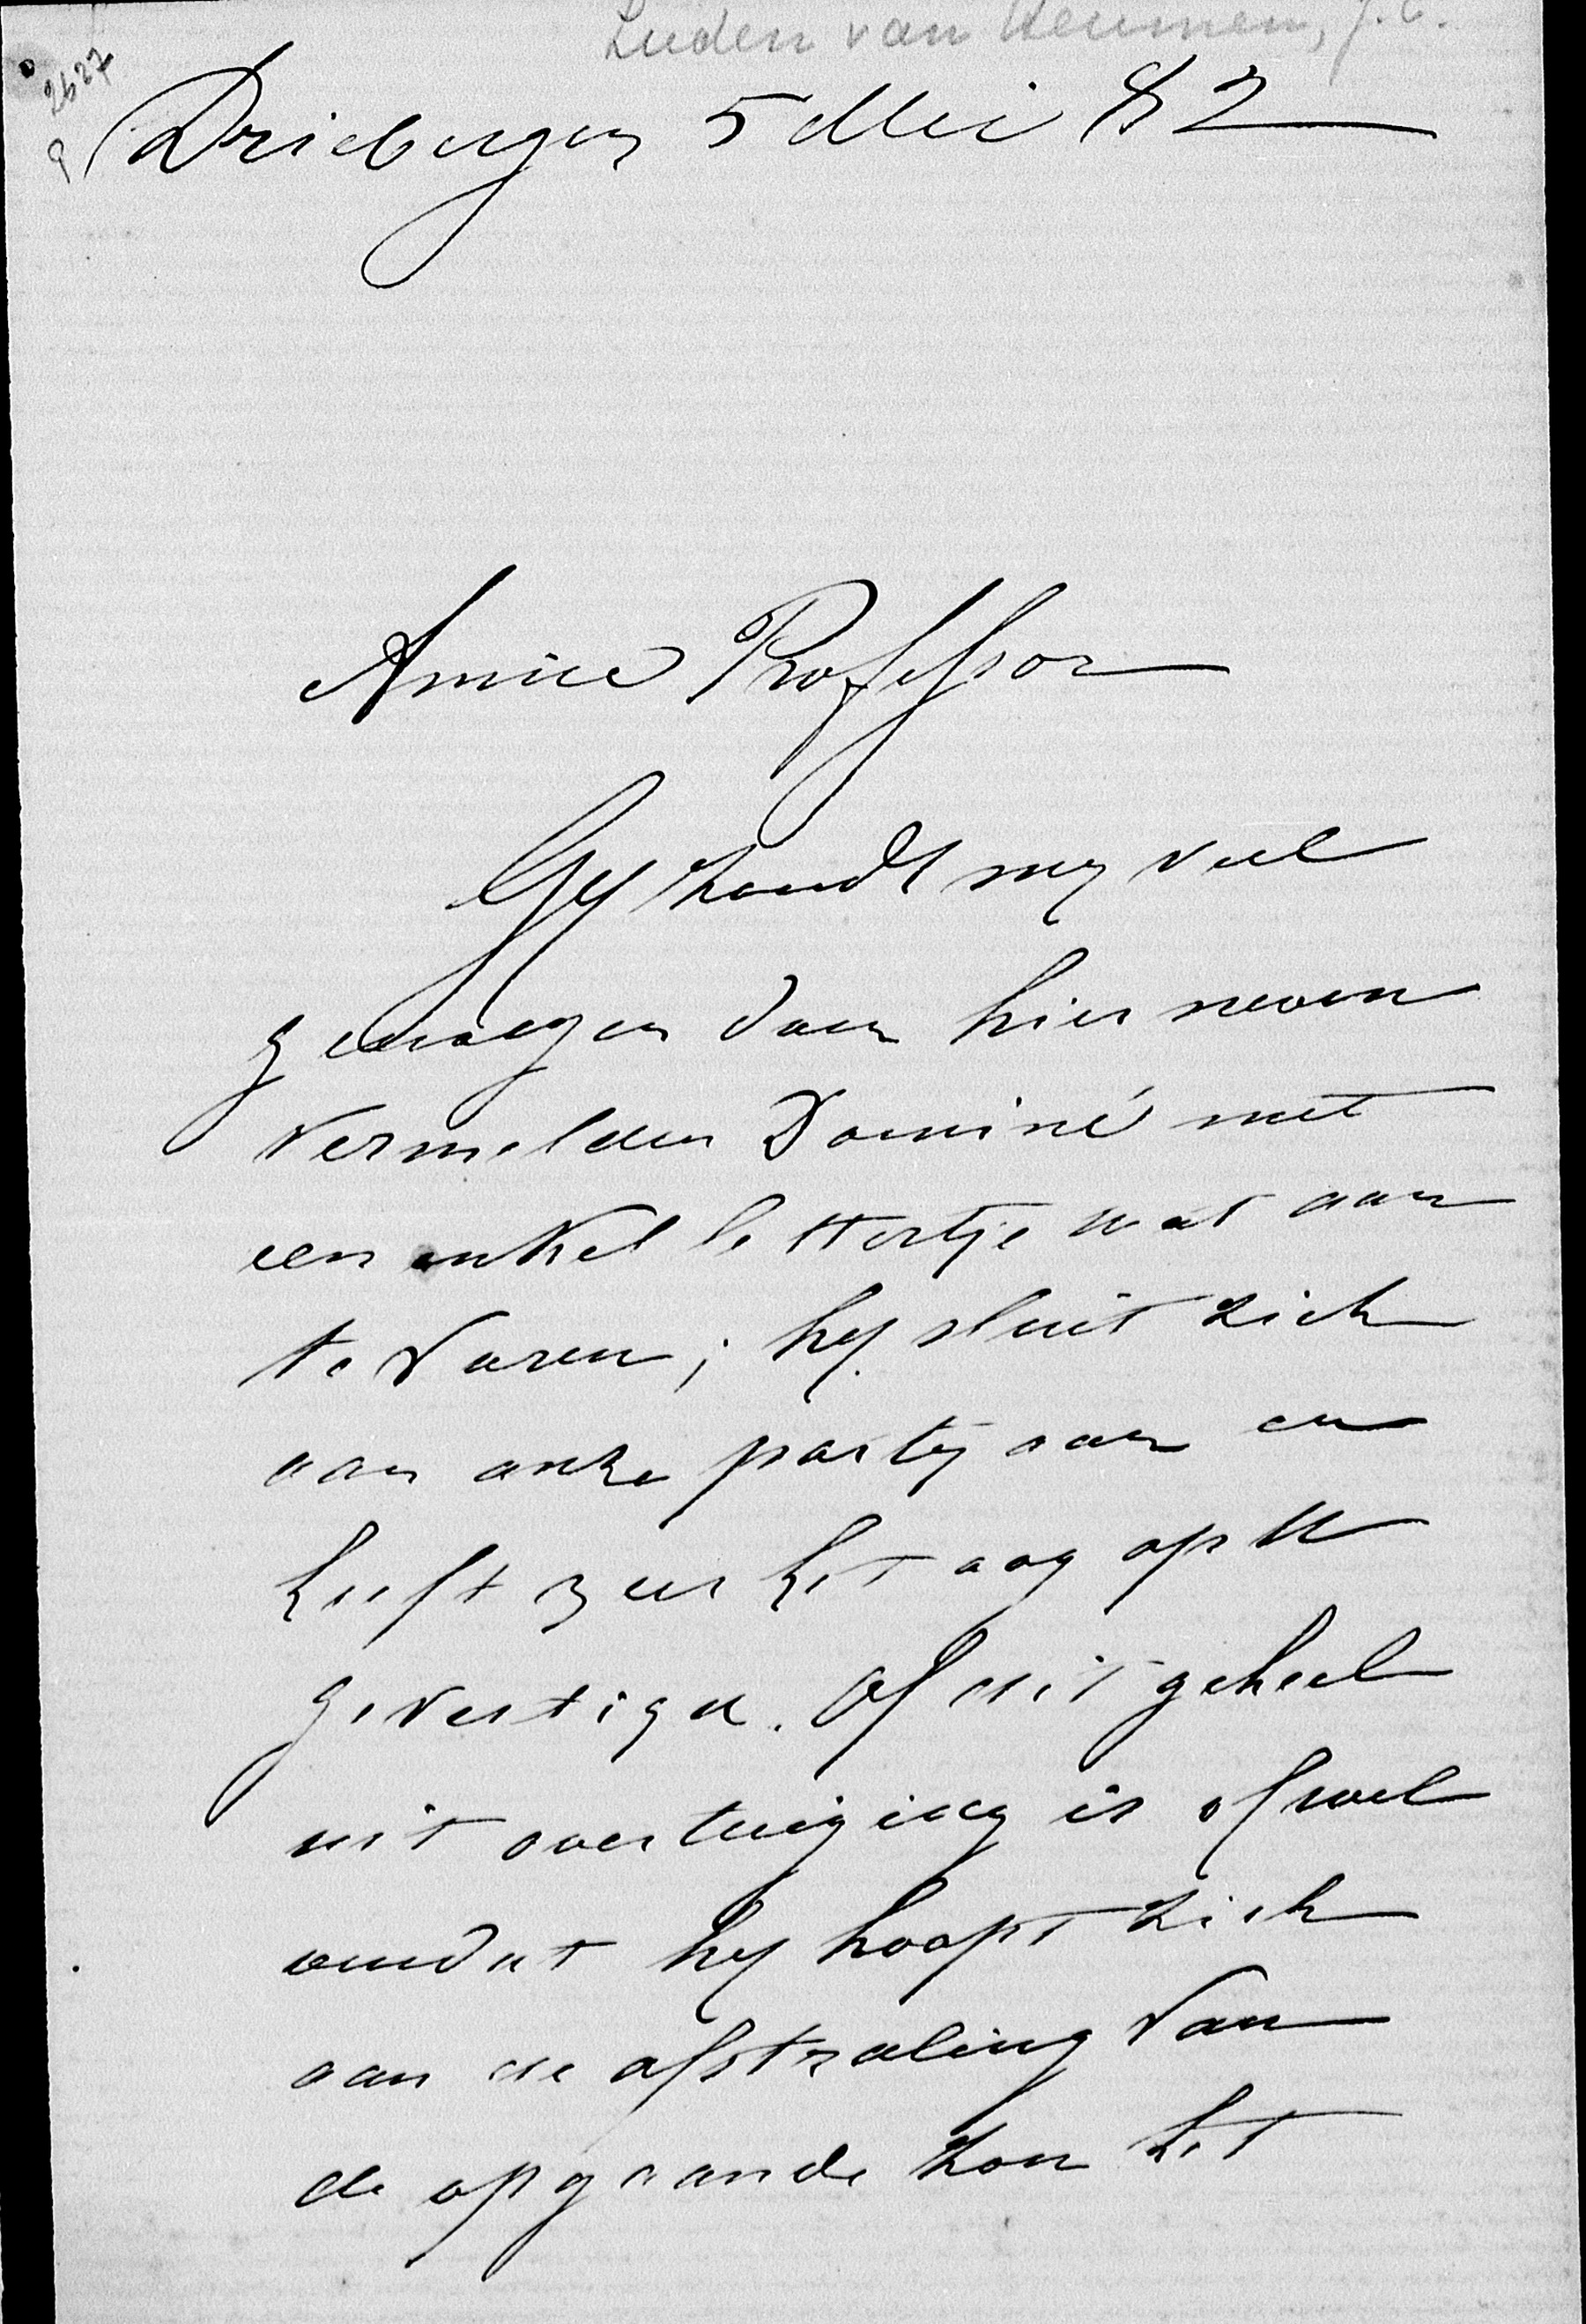 Luden van Heumen, J. C.
2627
Driebergen 5 Mei 82
Amice Professor
Gij houdt mij veel
genoegen door hier neven
vermelden Dominé met
een enkel lettertje wat aan
te vuren; hij sluit zich
aan onze partij aan en
heeft zeer het oog op U
gevestigd. Of dit geheel
uit overtuiging is ofwel
omdat hij hoopt zich
aan de afstraling van
de opgaande zon het